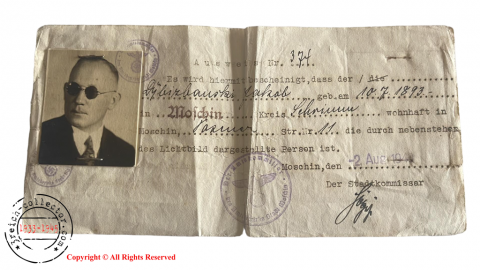 Ausweis Nr. 374.
Es wird hiermit bescheinigt, dass der / die
geb. am 10.7.1893.
in Moschin Kreis Schrimm wohnhaft in
Moschin, Str. Nr. 11. die durch nebenstehen
des Lichtbild dargestellte Person ist.
Moschin, den 2. Aug.
Der Stadtkommissar
3reich-collector.com
1933-1945
Copyright © All Rights Reserved